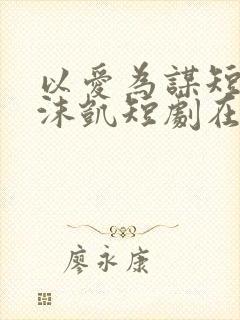 以愛為謀短
沫凱短劇在
廖永康